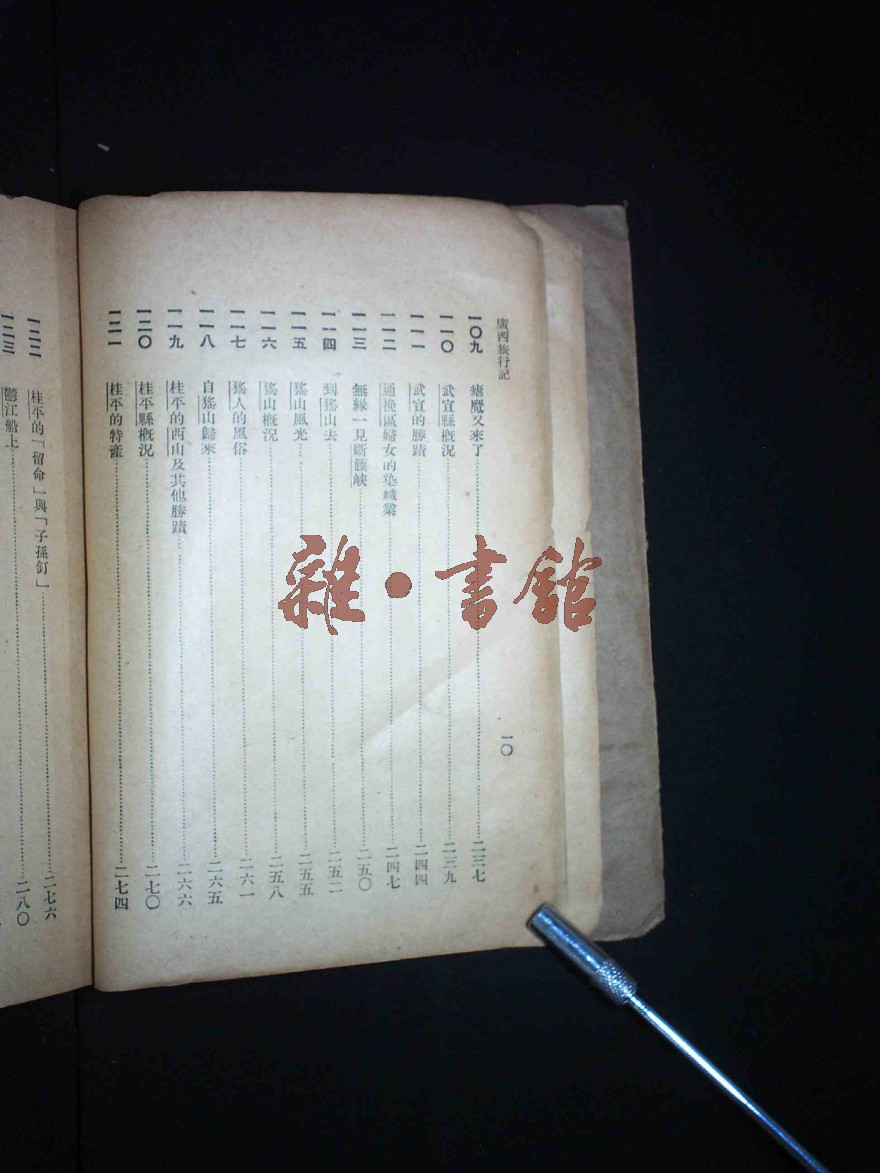 廣西旅行記
一〇九 瘧魔又來了……二三七
一一〇 武宣縣概況……二三九
一一一 武宣的勝蹟……二四四
一一二 通挽區婦女的染織業……二四七
一一三 無緣一見斷籐峽……二五〇
一一四 到猺山去……二五二
一一五 猺山風光……二五五
一一六 猺山概況……二五八
一一七 猺人的風俗……二六一
一一八 自猺山歸來……二六五
一一九 桂平的西山及其他勝蹟……二六六
一二〇 桂平縣概況……二七〇
一二一 桂平的特產……二七四
一〇
一二二 桂平的「留命」與「子孫釘」……二七六
一二三 鬱江船上……二八〇
雜·書館